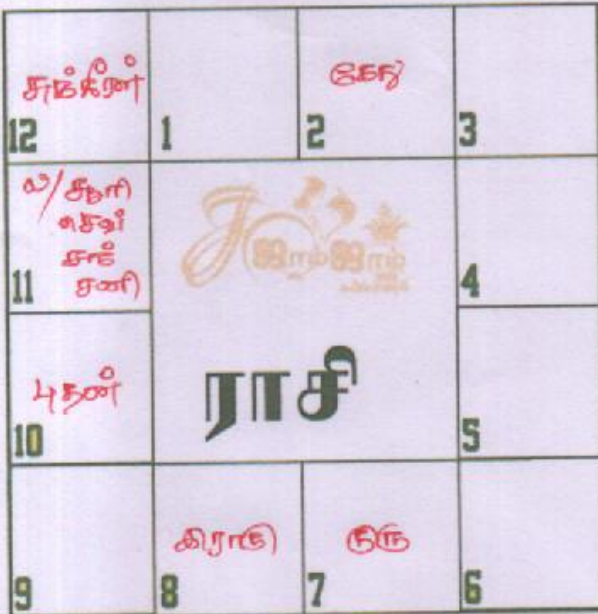 சுக்கிரன்
12
1
கேது
2
3
ல/சூரி
செவ்
சந்
சனி
11
4
புதன்
10
ராசி
5
9
இராகு
8
குரு
7
6